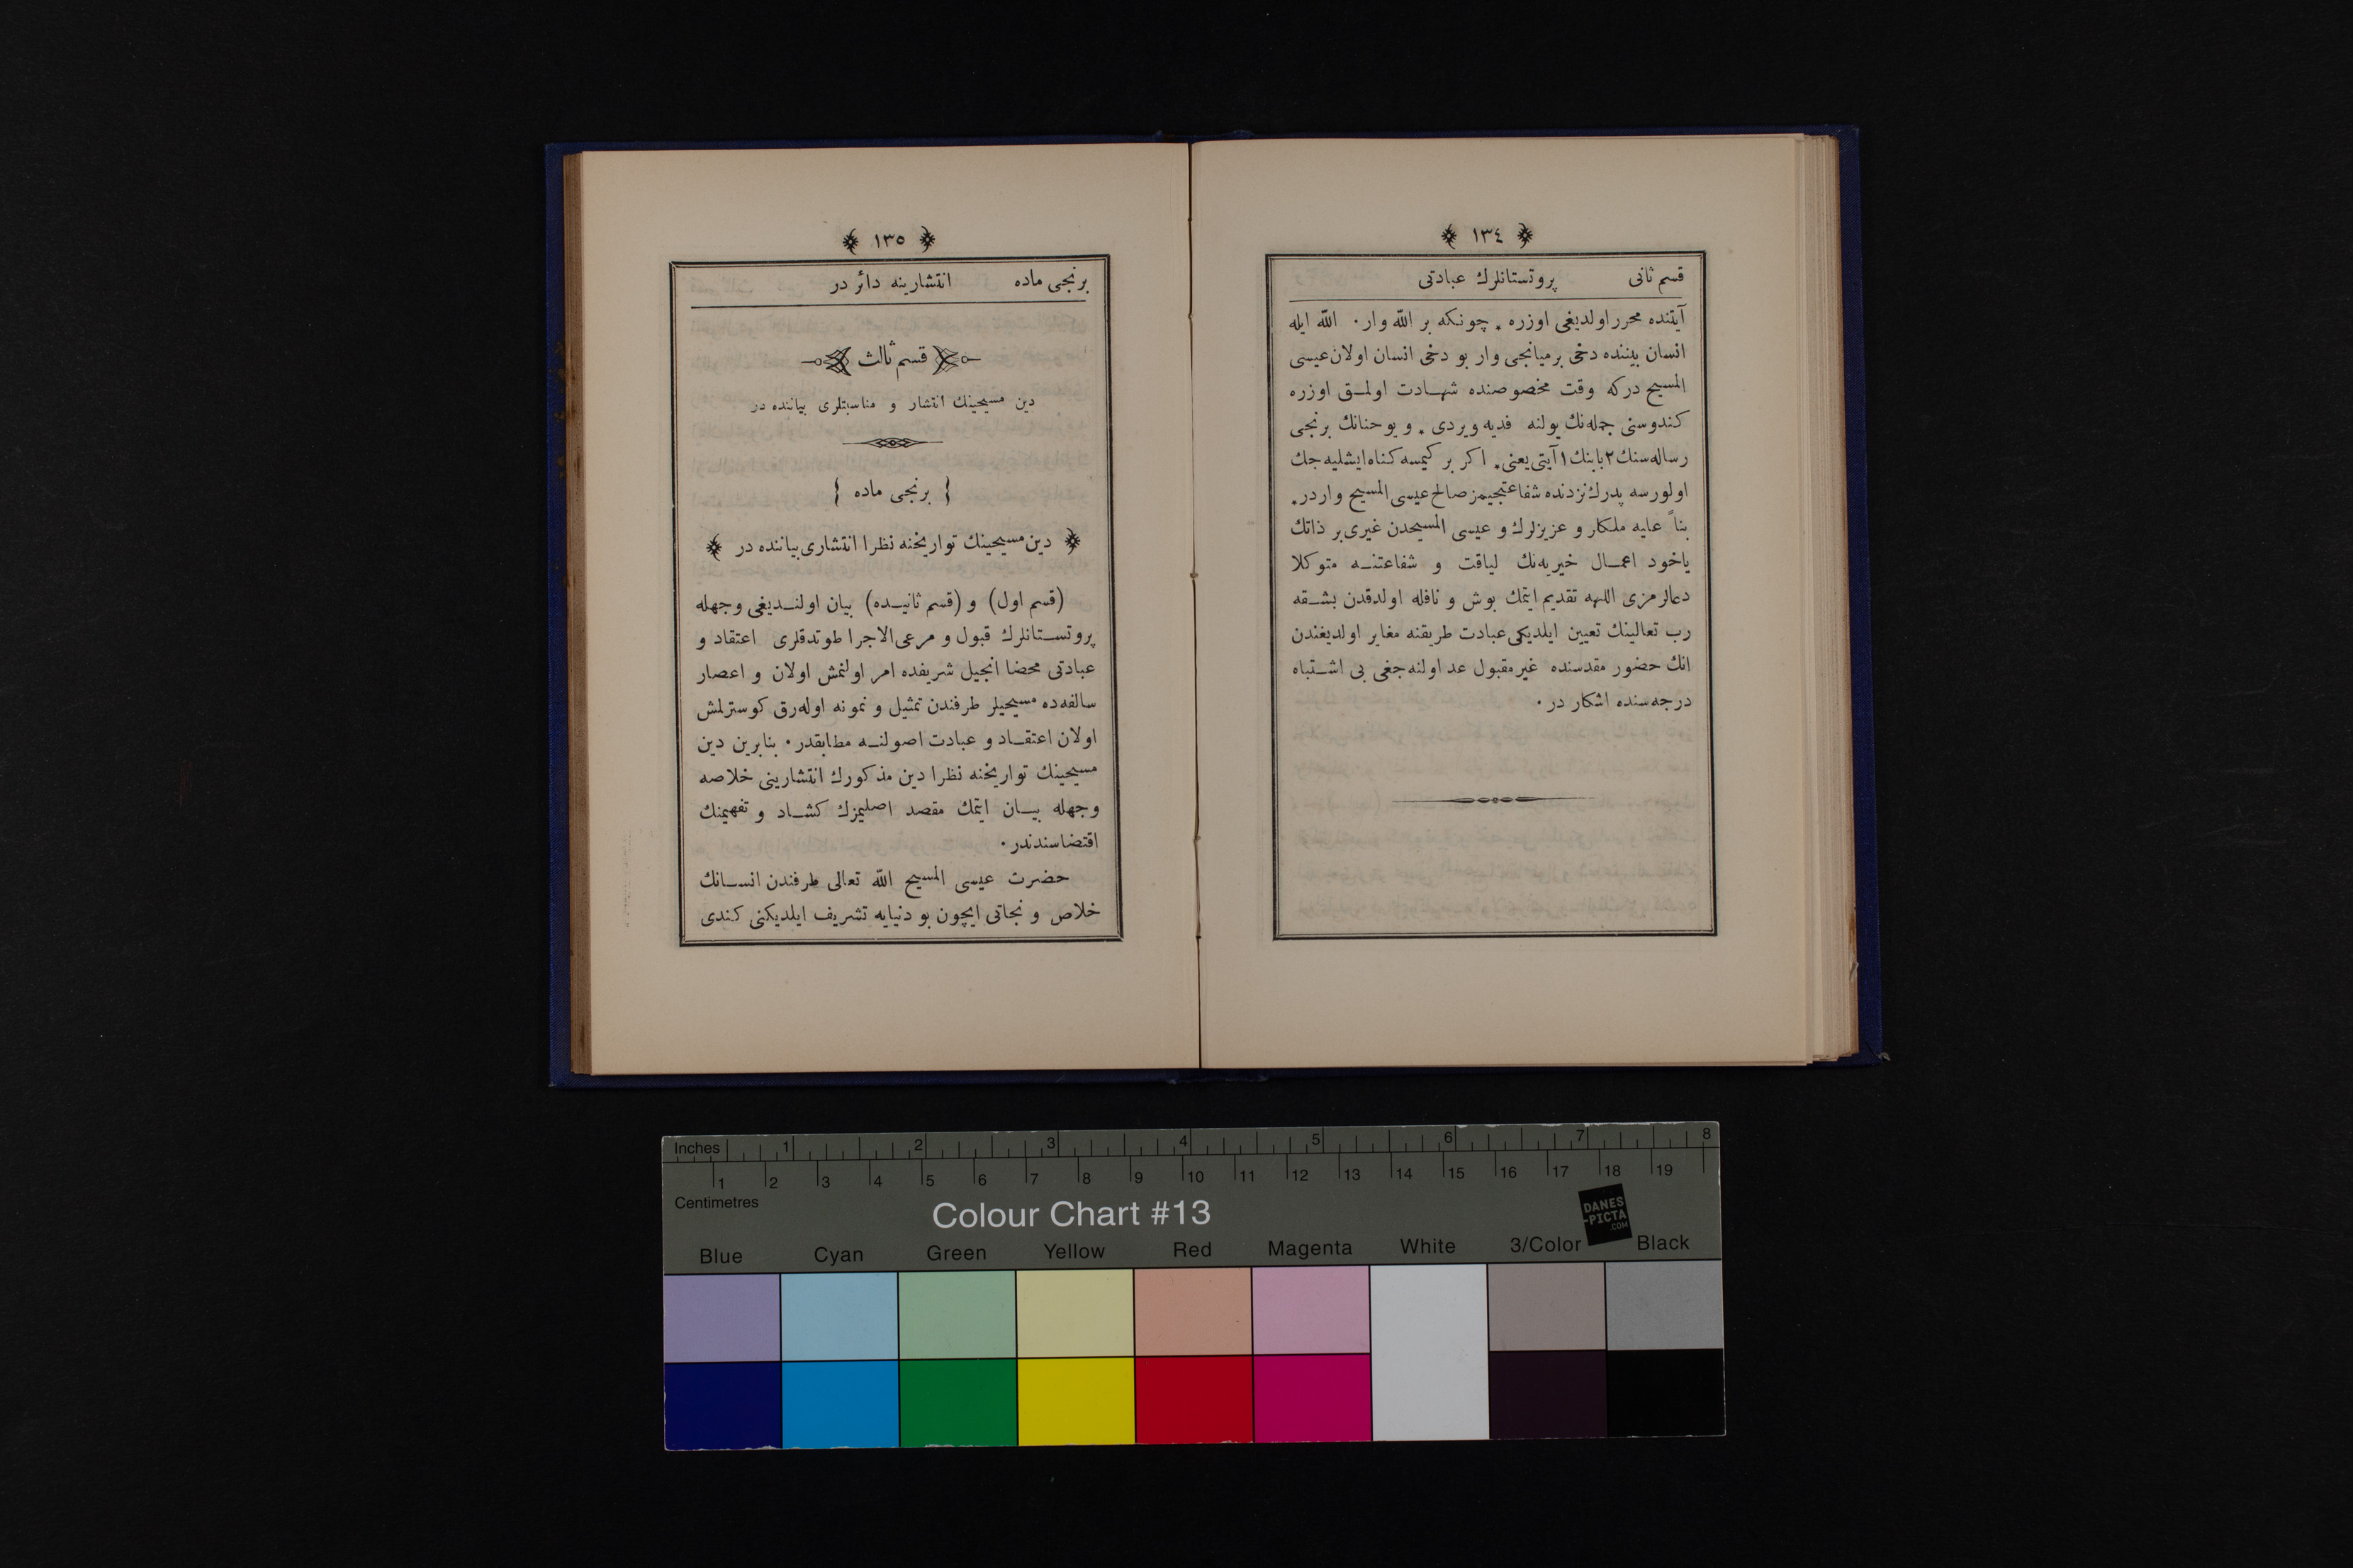 ١٣٤
قسم ثانی پروتستانلرك عبادتی
آیتنده محرر اولدیغی اوزره ٭ چونکه بر الله وار ٠ الله ایله
انسان بیننده دخی بر میانجی وار بو دخی انسان اولان عیسی
المسیح درکه وقت مخصوصنده شهـادت اولمـق اوزره
کندوسنی جمله‌نك یولنه فدیه ویردی ٭ و یوحنانك برنجی
رساله‌سنك ٢ بابنك ١ آیتی یعنی ٭ اکر بر کیمسه کناه ایشلیه جك
اولورسه پدرك نزدنده شفاعتجیمز صالح عیسی المسیح واردر ٭
بناً علیه ملکلر و عزیزلرك و عیسی المسیحدن غیری بر ذاتك
یاخود اعمـال خیریه‌نك لیاقت و شفاعتنـه متوکلا
دعالرمزی اللهه تقدیم ایتمك بوش و نافله اولدقدن بشـقه
رب تعالینك تعیین ایلدیکی عبادت طریقنه مغایر اولدیغندن
انك حضور مقدسنده غیر مقبول عد اولنه جغی بی اشـتباه
درجه‌سنده اشکار در ٠
١٣٥
برنجی ماده انتشارینه دائر در
قسم ثالث
دین مسیحینك انتشار و مناسبتلری بیاننده در
{ برنجی ماده }
دین مسیحینك تواریخنه نظرا انتشاری بیاننده در
(قسم اول) و (قسم ثانیـده) بیان اولنـدیغی وجهله
پروتسـتانلرك قبول و مرعی الاجرا طوتدقلری اعتقاد و
عبادتی محضا انجیل شریفده امر اولنمش اولان و اعصار
سالفه‌ده مسیحیلر طرفندن تمثیل و نمونه اوله‌رق کوسترلمش
اولان اعتقـاد و عبادت اصولنـه مطابقدر ٠ بنابرین دین
مسیحینك تواریخنه نظرا دین مذکورك انتشارینی خلاصه
وجهله بیـان ایتمك مقصد اصلیمزك کشـاد و تفهیمنك
اقتضاسندندر ٠
حضرت عیسی المسیح الله تعالی طرفندن انسـانك
خلاص و نجاتی ایچون بو دنیایه تشریف ایلدیکنی کندی
Inches 1 2 3 4 5 6 7 8
1 2 3 4 5 6 7 8 9 10 11 12 13 14 15 16 17 18 19
Centimetres
Colour Chart #13
DANES
-PICTA
.COM
Blue Cyan Green Yellow Red Magenta White 3/Color Black